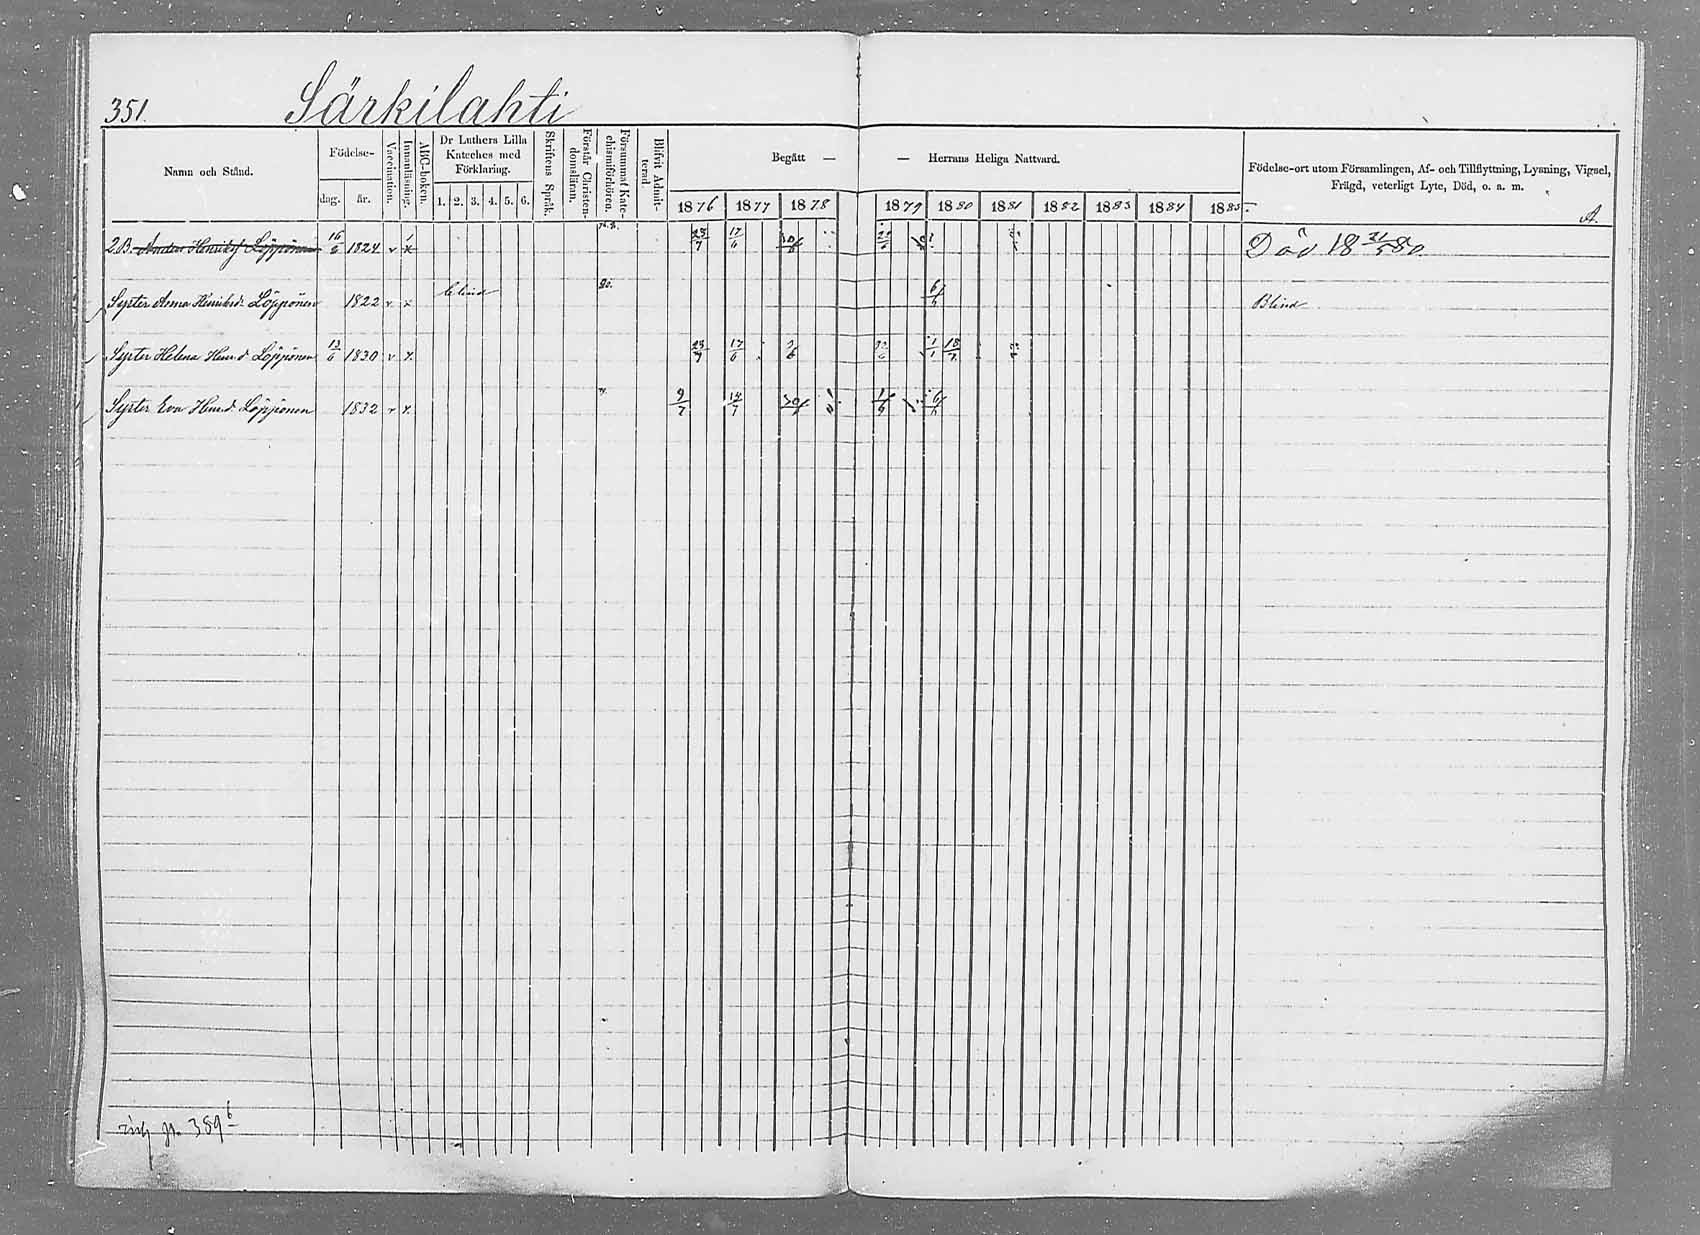 351. Särkilahti
Namn och Stånd.
Födelse-
dag. år.
Vaccination.
Innanläsning.
ABC-boken.
Dr Luthers Lilla
Kateches med
Förklaring.
1. 2. 3. 4. 5. 6.
Skriftens Språk.
Förstår Christen-
domsläran.
Försummat Kate-
chismiförhören.
Blifvit Admit-
terad.
Begått — — Herrans Heliga Nattvard.
1876 1877 1878 1879 1880 1881 1882 1883 1884 1885
Födelse-ort utom Församlingen, Af- och Tillflyttning, Lysning, Vigsel,
Frägd, veterligt Lyte, Död, o. a. m.
A.
2.B. Anders Löppönen 16/6 1824 v x 23/9 17/6 Död 18 80.
Syster Anna Löppönen 1822 v x blind 80. 6/6 Blind
Syster Helena Löppönen 13/6 1830 v x 23/9 17/6 1/1 18/7
Syster Eva Löppönen 1832 v x 9/7 14/7 6/6
389